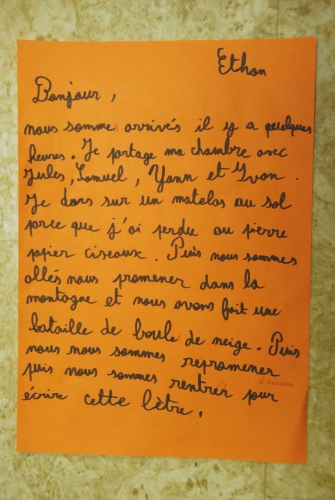 Ethan
Bonjour,
nous somme arrivés il y a quelques
heures. Je partage ma chambre avec
Jules, Samuel, Yann et Yvon.
Je dors sur un matelas au sol
parce que j'ai perdu au pierre
papier ciseaux. Puis nous sommes
allés nous promener dans la
montagne et nous avons fait une
bataille de boule de neige. Puis
nous nous sommes repromener
puis nous sommes rentrer pour
écrire cette lètre.